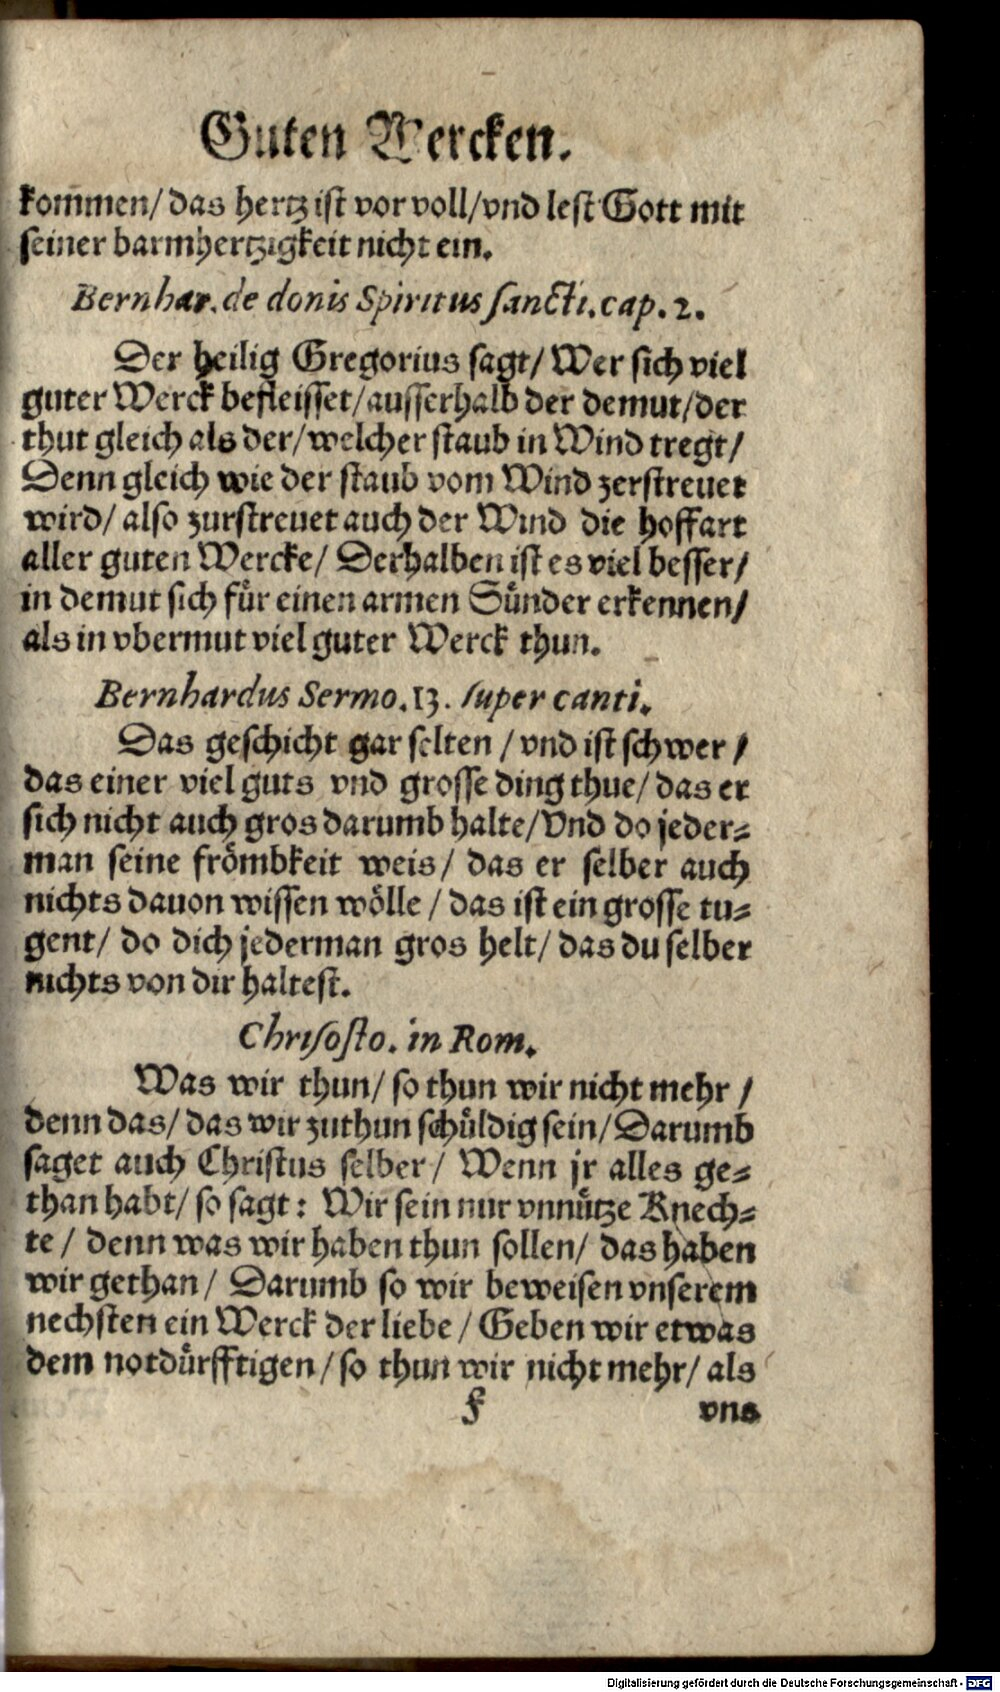 Guten Wercken.
kommen/ das hertz ist vor voll/ vnd lest Gott mit
seiner barmhertzigkeit nicht ein.
Bernhar. de donis Spiritus sancti. cap. 2.
Der heilig Gregorius sagt/ Wer sich viel
guter Werck befleisset/ ausserhalb der demut/ der
thut gleich als der/ welcher staub in Wind tregt/
Denn gleich wie der staub vom Wind zerstrevet
wird/ also zurstrevet auch der Wind die hoffart
aller guten Wercke/ Derhalben ist es viel besser/
in demut sich für einen armen Sünder erkennen/
als in vbermut viel guter Werck thun.
Bernhardus Sermo. 13. super canti.
Das geschicht gar selten / vnd ist schwer /
das einer viel guts vnd grosse ding thue/ das er
sich nicht auch gros darumb halte/ Vnd do jeder-
man seine frömbkeit weis/ das er selber auch
nichts dauon wissen wölle / das ist ein grosse tu-
gent/ do dich jederman gros helt/ das du selber
nichts von dir haltest.
Chrisosto. in Rom.
Was wir thun/ so thun wir nicht mehr /
denn das/ das wir zuthun schüldig sein/ Darumb
saget auch Christus selber/ Wenn jr alles ge-
than habt/ so sagt: Wir sein nur vnnütze Knech-
te / denn was wir haben thun sollen/ das haben
wir gethan/ Darumb so wir beweisen vnserem
nechsten ein Werck der liebe / Geben wir etwas
dem notdürfftigen/ so thun wir nicht mehr/ als
f vns
Digitalisierung gefördert durch die Deutsche Forschungsgemeinschaft - DFG